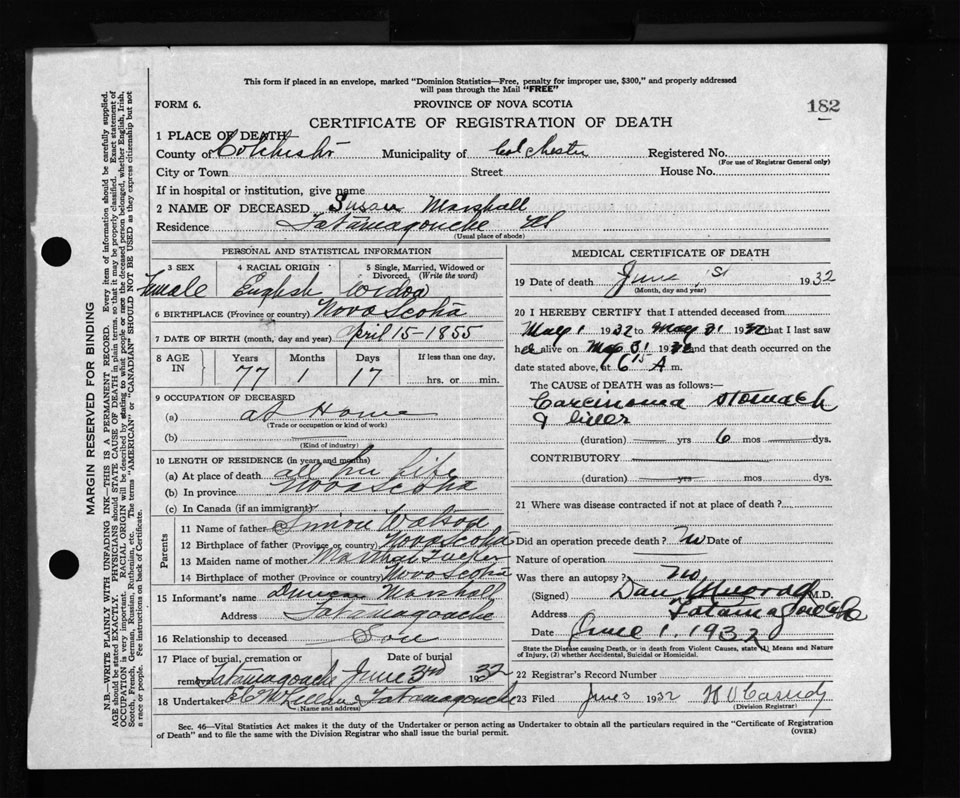 This form if placed in an envelope, marked "Dominion Statistics—Free, penalty for improper use, $300," and properly addressed
will pass through the Mail "FREE"
FORM 6. PROVINCE OF NOVA SCOTIA 182
CERTIFICATE OF REGISTRATION OF DEATH
1 PLACE OF DEATH
County of Colchester Municipality of Colchester Registered No.
(For use of Registrar General only)
City or Town Street House No.
If in hospital or institution, give name
2 NAME OF DECEASED Susan Marshall
Residence Tatamagouche NS
(Usual place of abode)
PERSONAL AND STATISTICAL INFORMATION
3 SEX 4 RACIAL ORIGIN 5 Single, Married, Widowed or
Divorced. (Write the word)
Female English Widow
6 BIRTHPLACE (Province or country) Nova Scotia
7 DATE OF BIRTH (month, day and year) April 15-1855
8 AGE IN Years Months Days If less than one day,
77 1 17 hrs. or min.
9 OCCUPATION OF DECEASED
(a) at Home
(Trade or occupation or kind of work)
(b)
(Kind of industry)
10 LENGTH OF RESIDENCE (in years and months)
(a) At place of death all her Life
(b) In province Nova Scotia
(c) In Canada (if an immigrant)
Parents
11 Name of father Simon Watson
12 Birthplace of father (Province or country) Nova Scotia
13 Maiden name of mother
14 Birthplace of mother (Province or country) Nova Scotia
15 Informant's name Duncan Marshall
Address Tatamagouche
16 Relationship to deceased Son
17 Place of burial, cremation or Date of burial
removal Tatamagouche June 3rd 1932
18 Undertaker Tatamagouche
(Name and address)
MEDICAL CERTIFICATE OF DEATH
19 Date of death June 1st 1932
(Month, day and year)
20 I HEREBY CERTIFY that I attended deceased from
May 1 1932 to May 31 1932 that I last saw
her alive on May 31 1932 and that death occurred on the
date stated above, at 6 15 A m.
The CAUSE OF DEATH was as follows:—
Carcinoma stomach
& liver
(duration) yrs 6 mos dys.
CONTRIBUTORY
(duration) yrs mos dys.
21 Where was disease contracted if not at place of death?
Did an operation precede death? No Date of
Nature of operation
Was there an autopsy? No
(Signed) Dan Murray M.D.
Address Tatamagouche
Date June 1. 1932
State the Disease causing Death, or in death from Violent Causes, state (1) Means and Nature
of Injury, (2) whether Accidental, Suicidal or Homicidal.
22 Registrar's Record Number
23 Filed June 3 1932
(Division Registrar)
Sec. 46—Vital Statistics Act makes it the duty of the Undertaker or person acting as Undertaker to obtain all the particulars required in the "Certificate of Registration
of Death" and to file the same with the Division Registrar who shall issue the burial permit. (OVER)
MARGIN RESERVED FOR BINDING
N.B.—WRITE PLAINLY WITH UNFADING INK—THIS IS A PERMANENT RECORD. Every item of information should be carefully supplied.
AGE should be stated EXACTLY. PHYSICIANS should STATE CAUSE OF DEATH in plain terms, so that it may be properly classified. Exact statement of
OCCUPATION is very important. RACIAL ORIGIN will be described by stating to what people or race the deceased person belonged, whether English, Irish,
Scotch, French, German, Russian, Ruthenian, etc. The terms "AMERICAN" or "CANADIAN" SHOULD NOT BE USED as they express citizenship but not
a race or people. See instructions on back of Certificate.